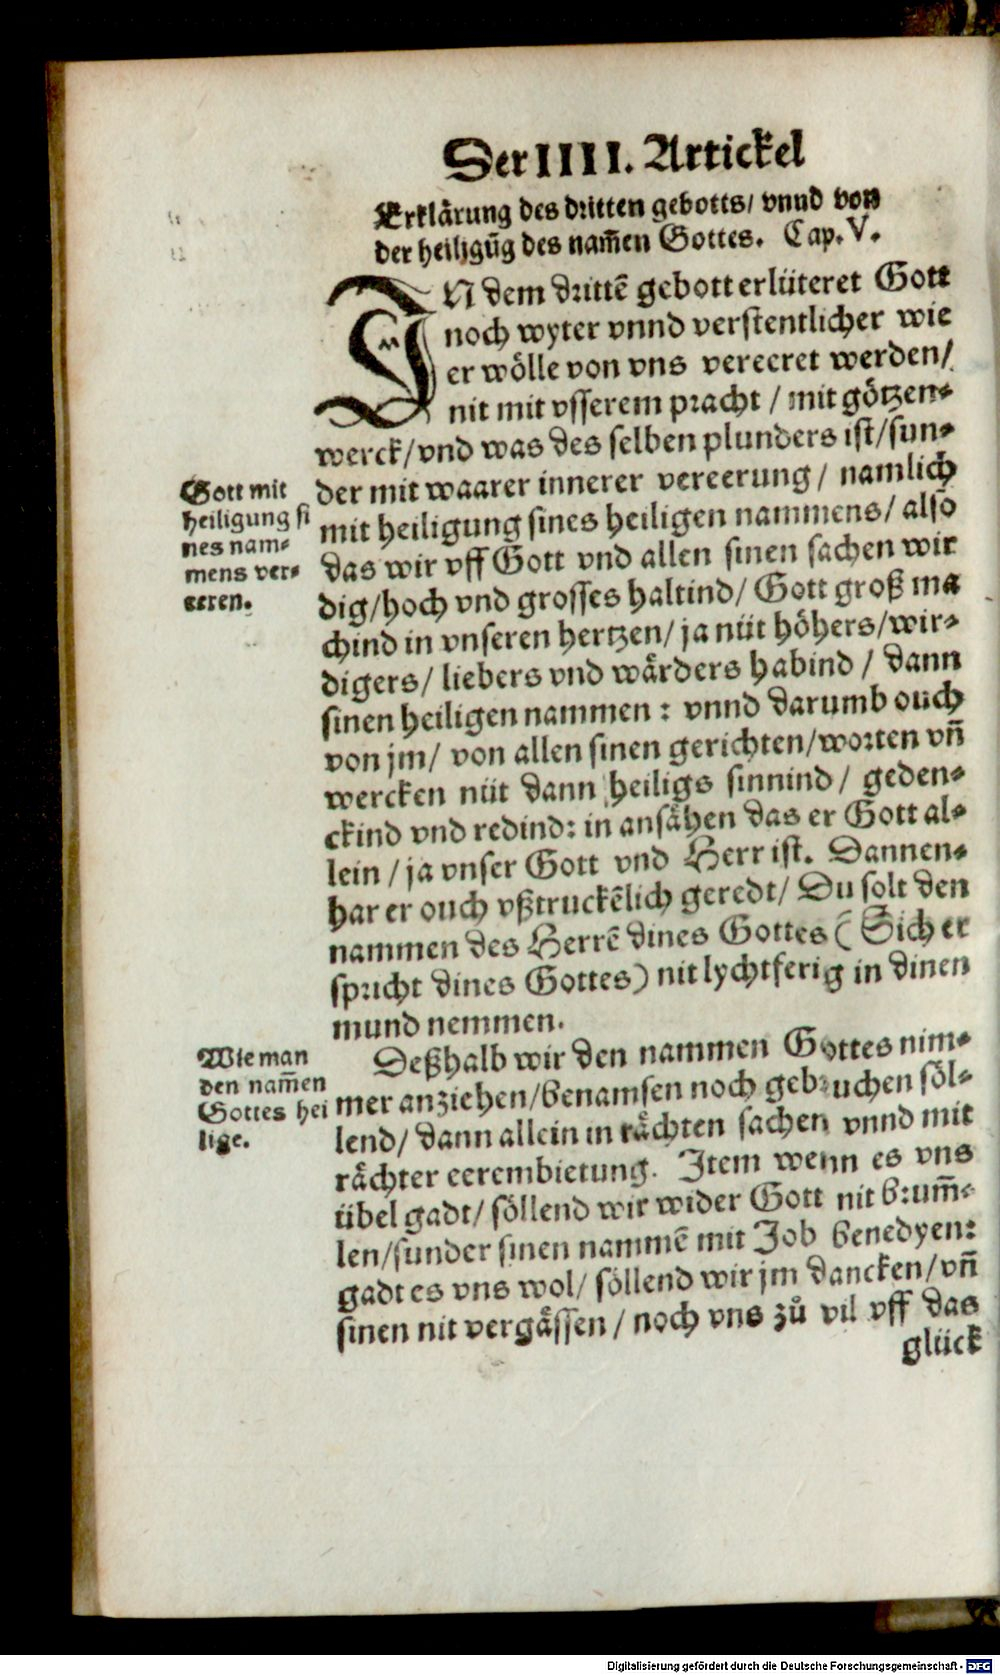 Der IIII. Artickel
Erklårung des dritten gebotts/ vnnd von
der heiligūg des nam̄en Gottes. Cap. V.
IN dem drittē gebott erlüteret Gott
noch wyter vnnd verstentlicher wie
er wölle von vns vereeret werden/
nit mit vsserem pracht / mit götzen-
werck/vnd was des selben plunders ist/sun-
Gott mit
heiligung si
nes nam-
mens ver-
eeren.
der mit waarer innerer vereerung / namlich
mit heiligung sines heiligen nammens/ also
das wir vff Gott vnd allen sinen sachen wir
dig/hoch vnd grosses haltind/ Gott groß ma
chind in vnseren hertzen/ ja nüt höhers/wir-
digers/ liebers vnd wårders habind / dann
sinen heiligen nammen : vnnd darumb ouch
von jm/ von allen sinen gerichten/worten vn̄
wercken nüt dann heiligs sinnind / geden-
ckind vnd redind: in ansåhen das er Gott al-
lein / ja vnser Gott vnd Herr ist. Dannen-
har er ouch vßtruckēlich geredt/ Du solt den
nammen des Herrē dines Gottes ( Sich er
spricht dines Gottes) nit lychtferig in dinen
mund nemmen.
Wie man
den nam̄en
Gottes hei
lige.
Deßhalb wir den nammen Gottes nim-
mer anziehen/benamsen noch gebruchen söl-
lend/ dann allein in råchten sachen vnnd mit
råchter eerembietung. Item wenn es vns
übel gadt/ söllend wir wider Gott nit brum̄-
len/sunder sinen nammē mit Job benedyen:
gadt es vns wol/ söllend wir jm dancken/vn̄
sinen nit vergåssen / noch vns zů vil vff das
glück
Digitalisierung gefördert durch die Deutsche Forschungsgemeinschaft - DFG